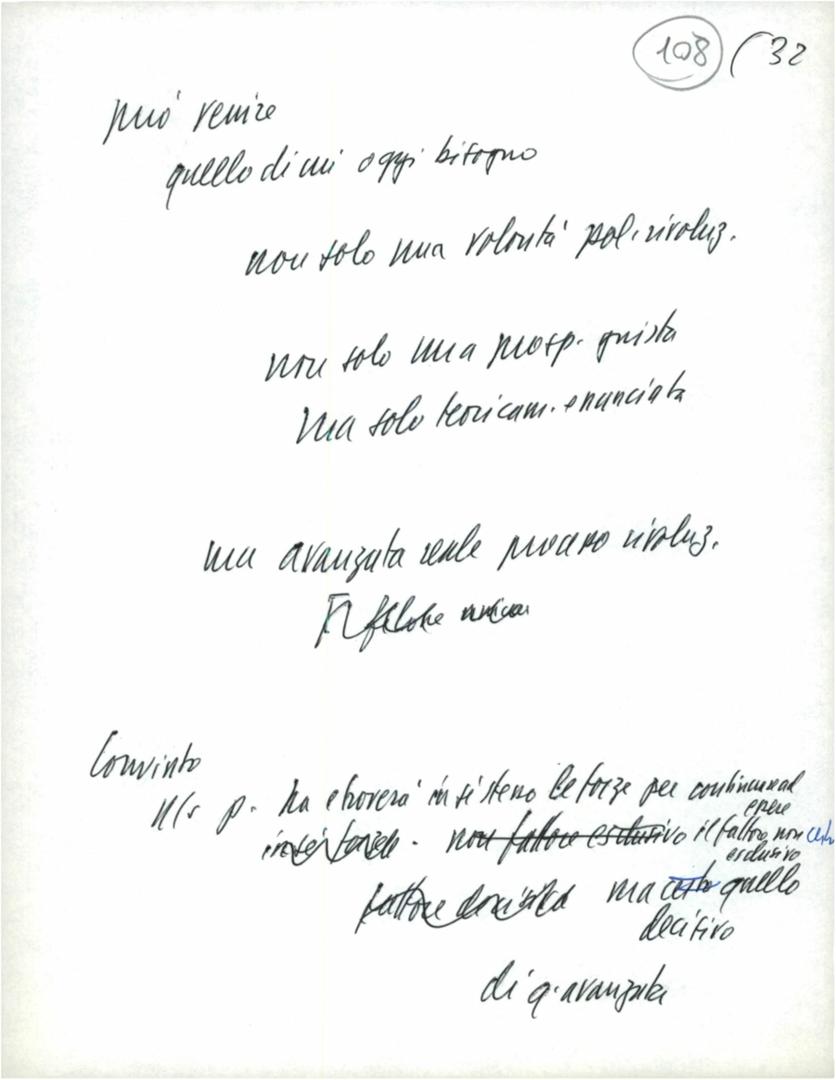 108 (32
può venire
quello di cui oggi bisogno
non solo una volontà pol. rivoluz.
non solo una prosp. giusta
ma solo teoricam. enunciata
ma avanzata reale processo rivoluz.
Convinto
n/s p. ha e troverà in sé stesso le forze per continuare ad
essere
non fattore esclusivo il fattore non certo
esclusivo
fattore decisivo ma certo quello
decisivo
di q. avanzata